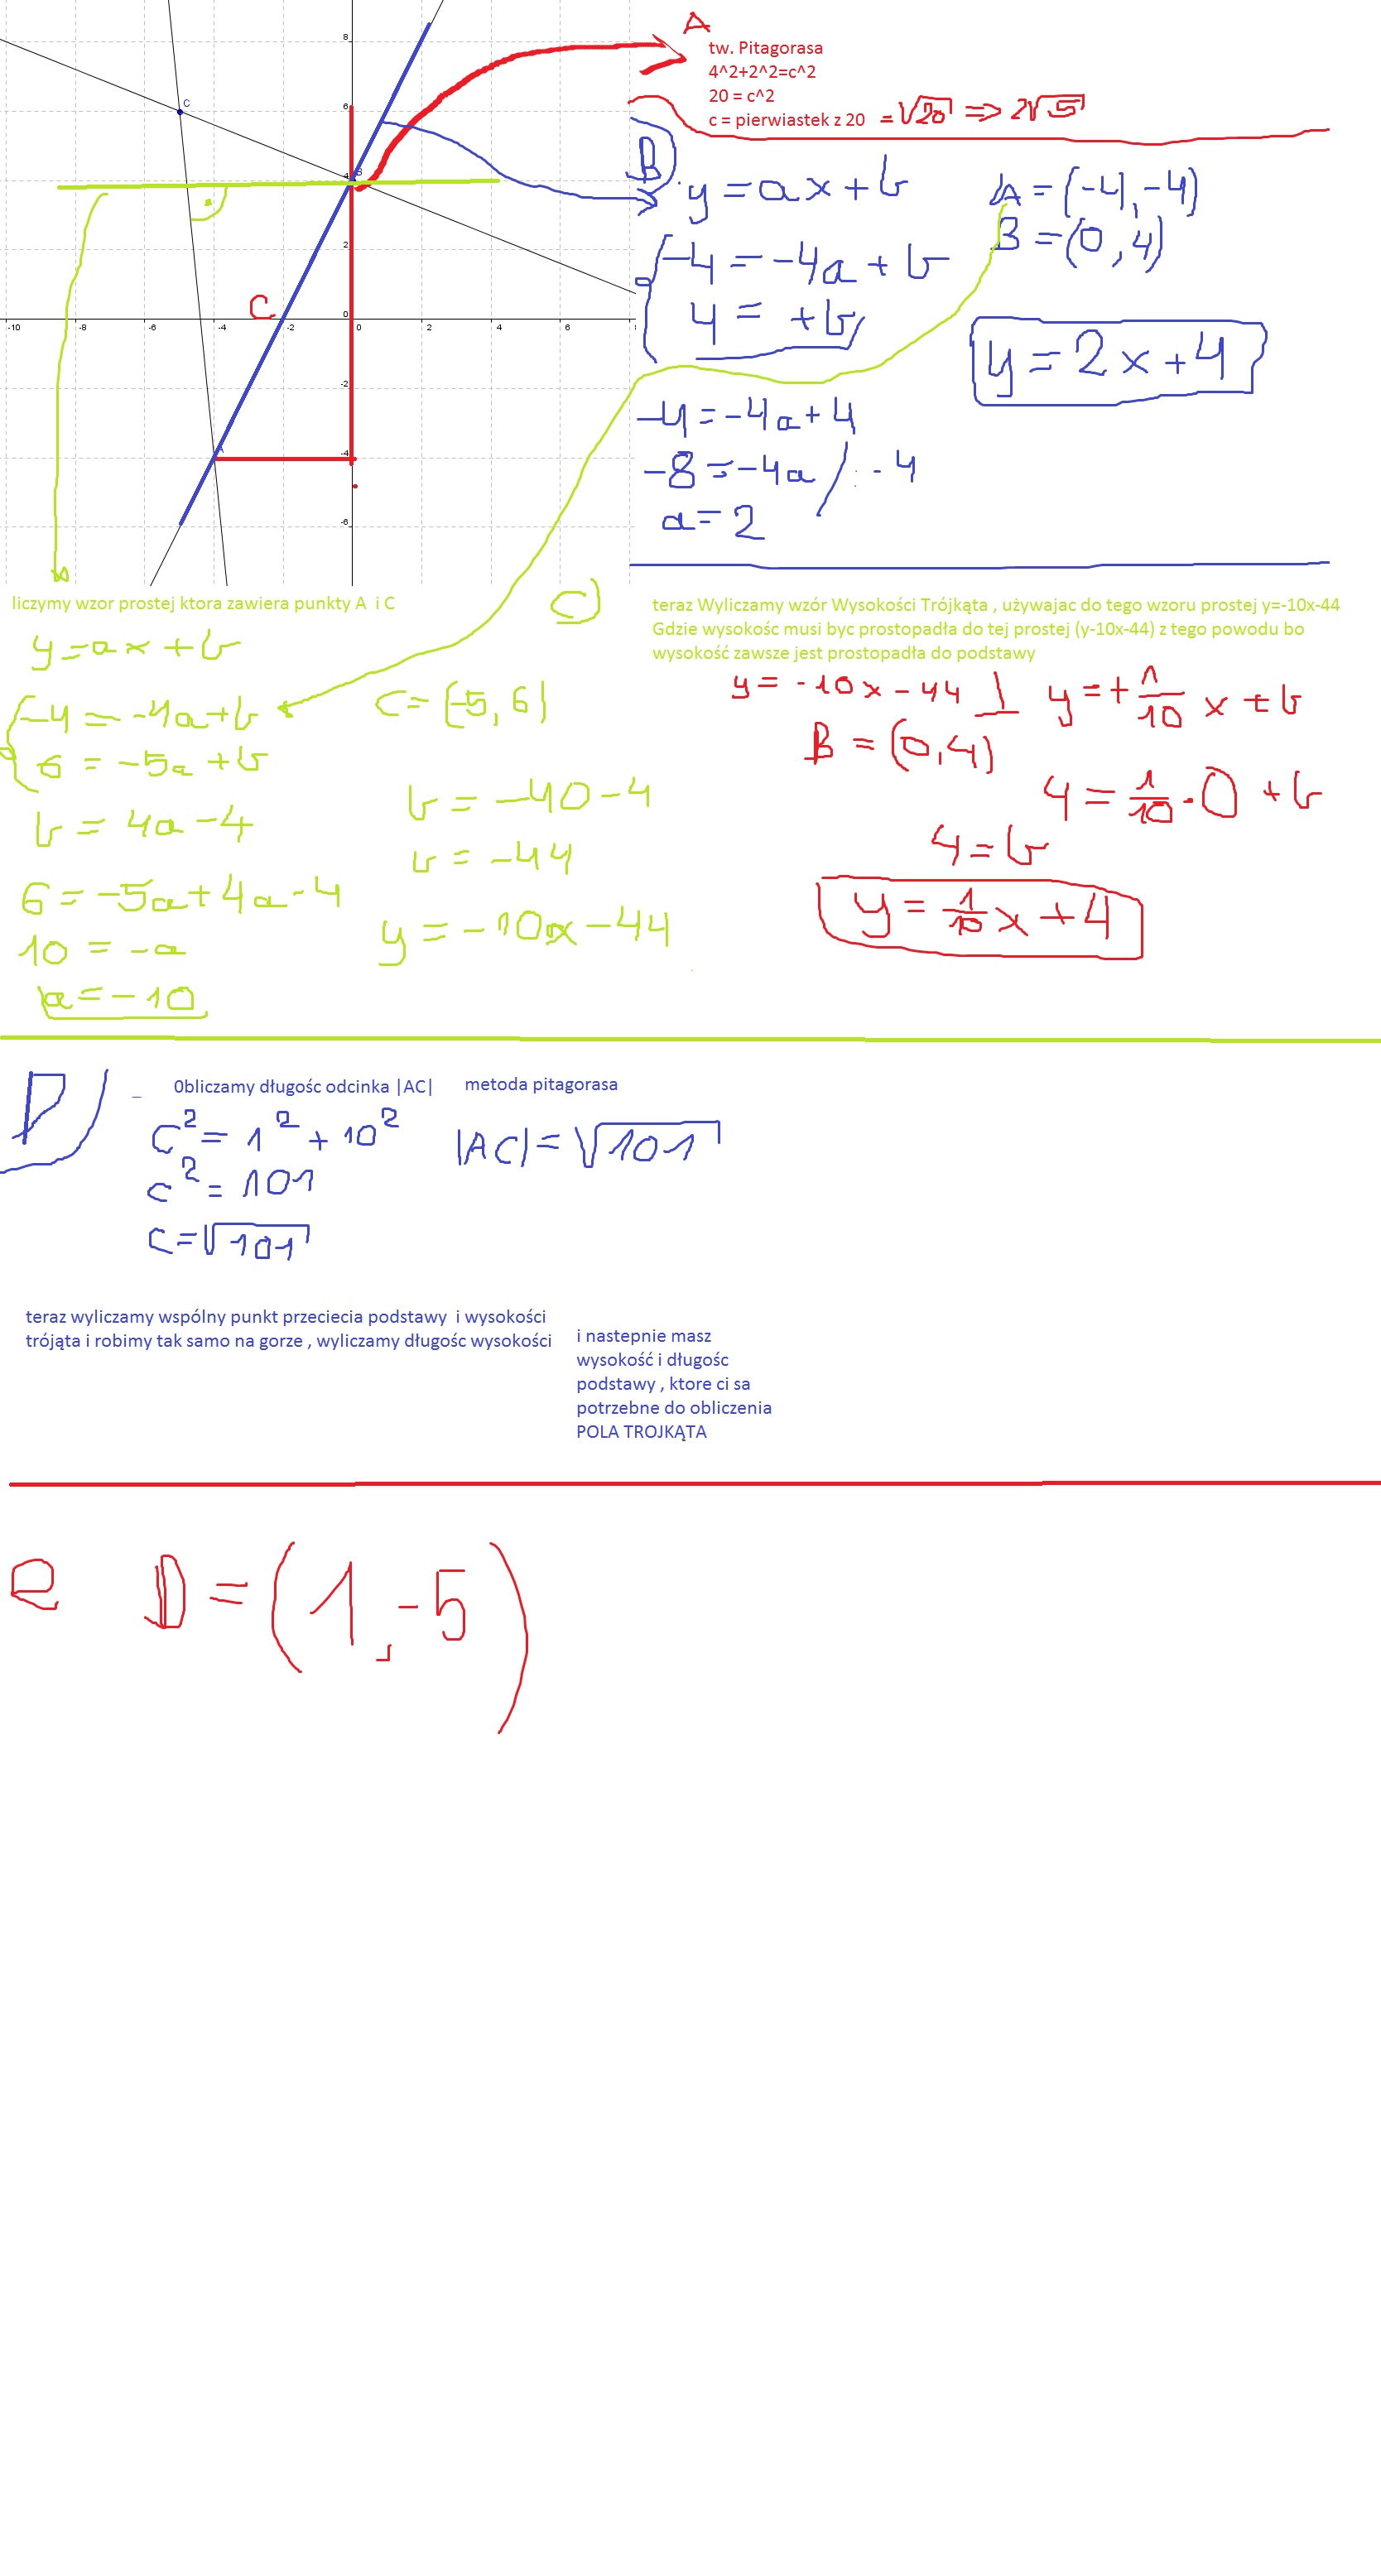 A
tw. Pitagorasa
4^2+2^2=c^2
20 = c^2
c = pierwiastek z 20 = √20 => 2√5
8
6
4
2
0
-2
-4
-6
-10 -8 -6 -4 -2 0 2 4 6
C
B
A
C
B)
y = ax + b
A = (-4, -4)
B = (0, 4)
-4 = -4a + b
4 = +b
y = 2x + 4
-4 = -4a + 4
-8 = -4a / : -4
a = 2
C)
liczymy wzor prostej ktora zawiera punkty A i C
y = ax + b
-4 = -4a + b
6 = -5a + b
C = (-5, 6)
b = 4a - 4
6 = -5a + 4a - 4
10 = -a
a = -10
b = -40 - 4
b = -44
y = -10x - 44
teraz Wyliczamy wzór Wysokości Trójkąta , używajac do tego wzoru prostej y=-10x-44
Gdzie wysokośc musi byc prostopadła do tej prostej (y-10x-44) z tego powodu bo
wysokość zawsze jest prostopadła do podstawy
y = -10x - 44 ⊥ y = + 1/10 x + b
B = (0, 4)
4 = 1/10 · 0 + b
4 = b
y = 1/10 x + 4
D)
_ Obliczamy długośc odcinka |AC| metoda pitagorasa
c² = 1² + 10²
c² = 101
c = √101
|AC| = √101
teraz wyliczamy wspólny punkt przeciecia podstawy i wysokości
trójąta i robimy tak samo na gorze , wyliczamy długośc wysokości
i nastepnie masz
wysokość i długośc
podstawy , ktore ci sa
potrzebne do obliczenia
POLA TROJKĄTA
e D = (1, -5)